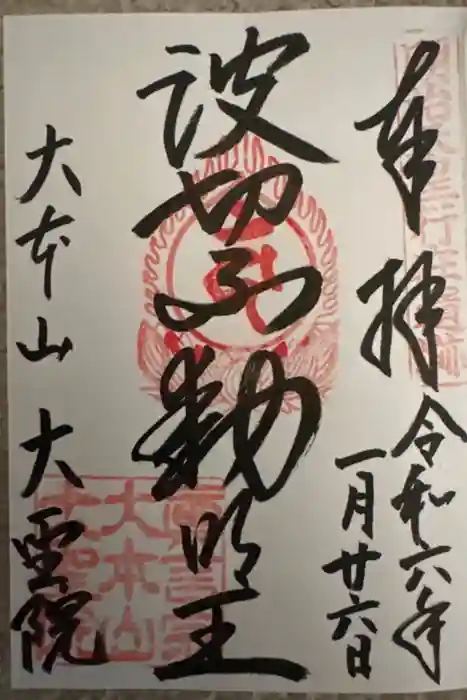 奉拝
令和六年
一月廿六日
波切不動明王
大本山 大聖院
大本山